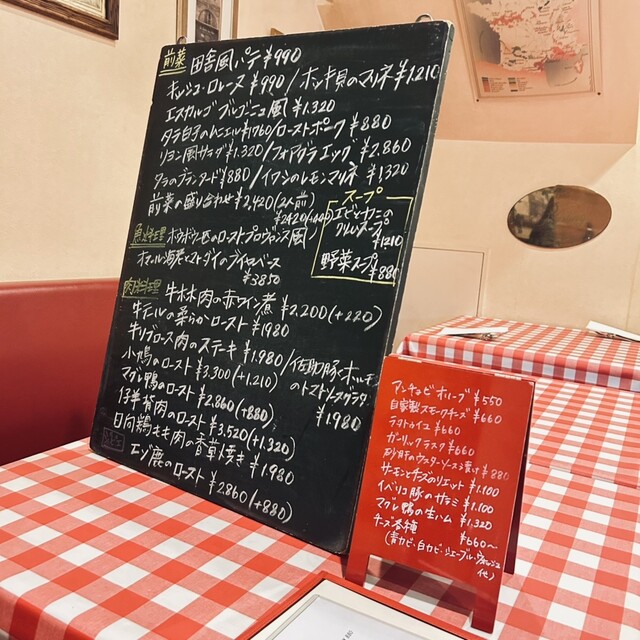 前菜 田舎風パテ ¥990
キッシュ・ローレーヌ ¥990 / ホッキ貝のマリネ ¥1,210
エスカルゴ ブルゴーニュ風 ¥1,320
タラ白子のムニエル ¥1760 / ローストポーク ¥880
リヨン風サラダ ¥1,320 / フォアグラエッグ ¥2,860
タラのブランダード ¥880 / イワシのレモンマリネ ¥1320
前菜の盛り合わせ ¥2,420 (2人前)
¥2420(+440)
スープ
エビとカニの
クリームスープ
¥1210
野菜スープ ¥880
魚料理 ホウボウ一匹のローストプロヴァンス風
オマール海老とマトダイのブイヤベース
¥3850
肉料理 牛ホホ肉の赤ワイン煮 ¥2,200 (+220)
牛テールの柔らかロースト ¥1980
牛リブロース肉のステーキ ¥1,980 / 佐助豚とホルモン
のトマトソースグラタン
¥1,980
小鳩のロースト ¥3,300 (+1,210)
マグレ鴨のロースト ¥2,860 (+880)
仔羊背肉のロースト ¥3,520 (+1,320)
日向鶏もも肉の香草焼き ¥1,980
エゾ鹿のロースト ¥2860 (+880)
アンチョビオリーブ ¥550
自家製スモークチーズ ¥660
ラタトゥイユ ¥660
ガーリックラスク ¥660
砂肝のウスターソース漬け ¥880
サーモンとチーズのリエット ¥1,100
イベリコ豚のサラミ ¥1,100
マグレ鴨の生ハム ¥1,320
チーズ各種 ¥660〜
(青カビ・白カビ・シェーブル・ウォッシュ
他)